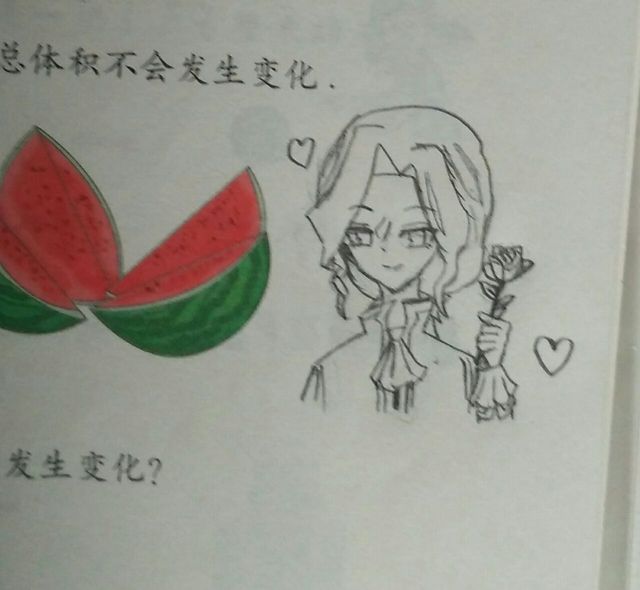 总体积不会发生变化.
发生变化?